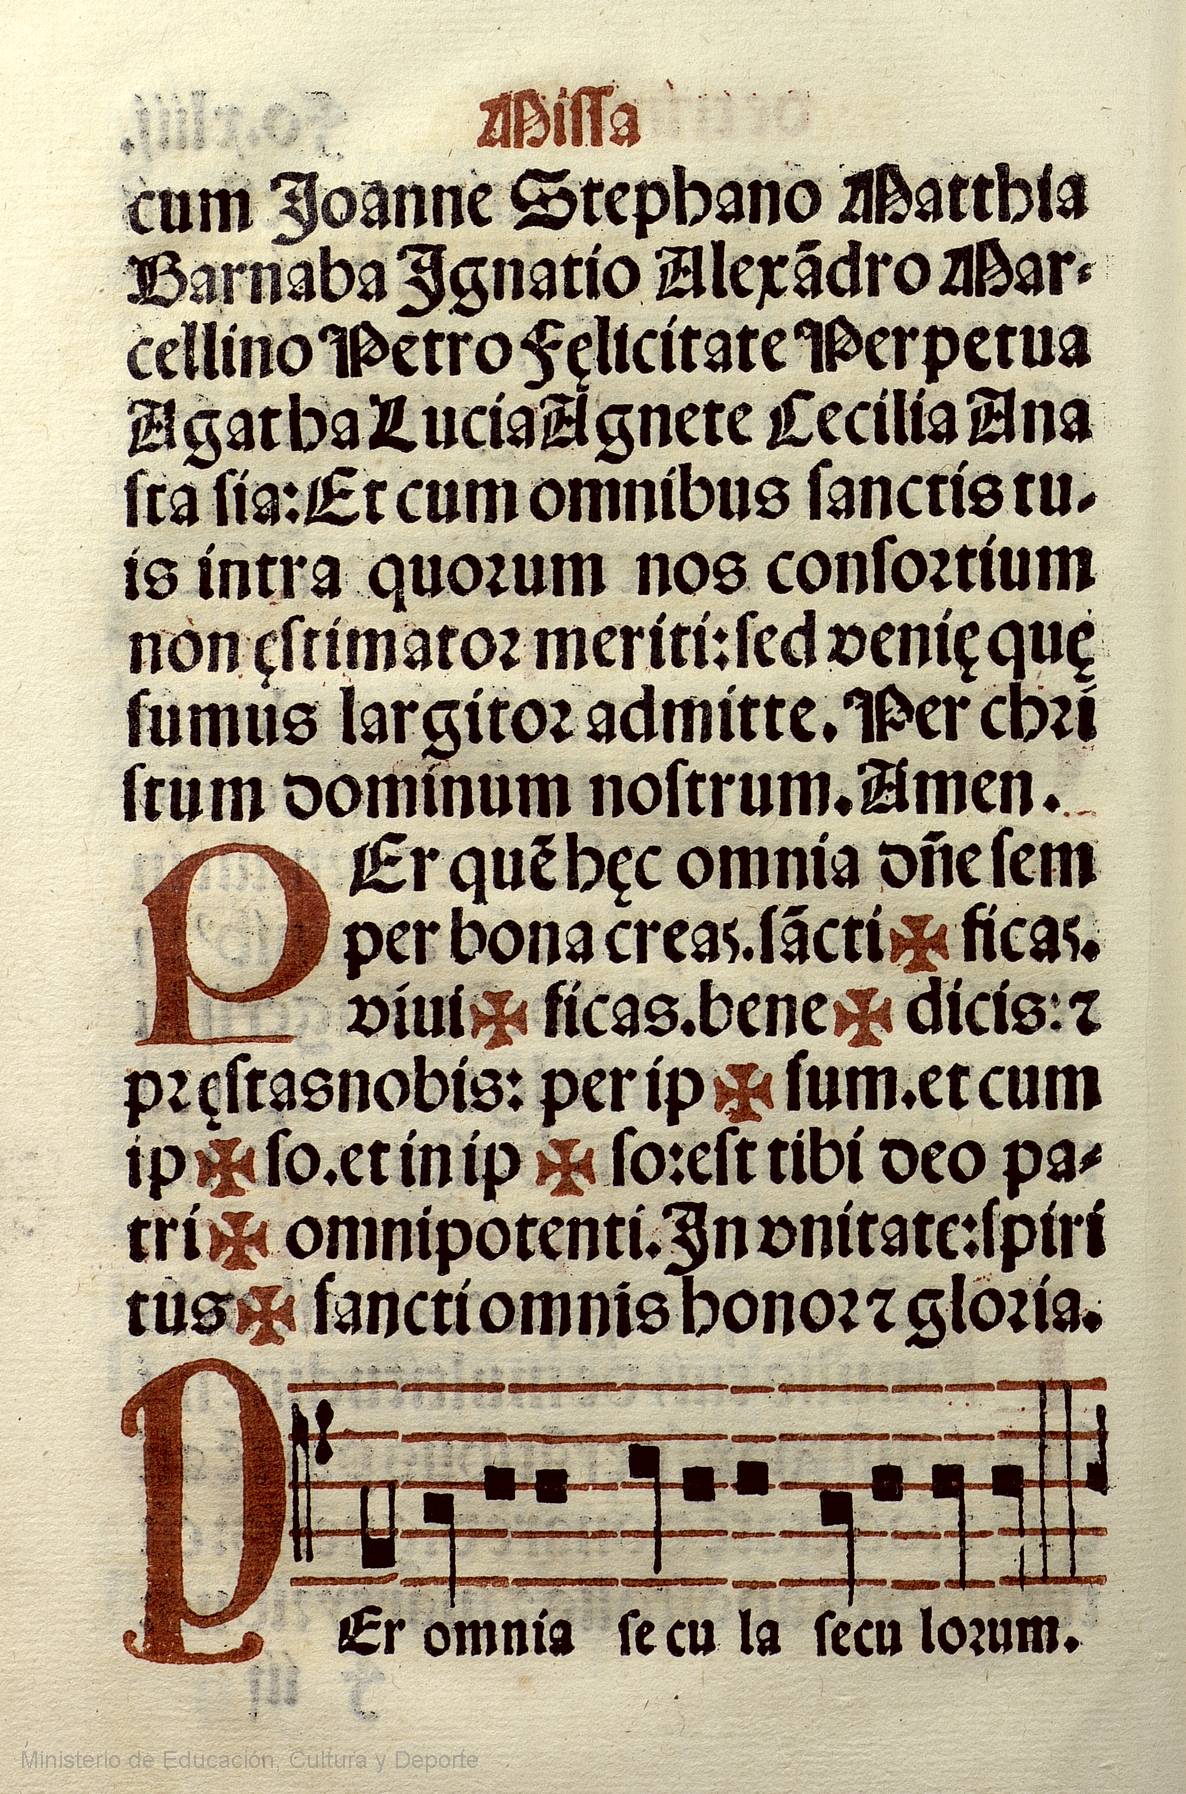 Missa
cum Joanne Stephano Matthia
Barnaba Ignatio Alexãdro Mar-
cellino Petro Fęlicitate Perpetua
Agatha Lucia Agnete Cecilia Ana
sta sia: Et cum omnibus sanctis tu-
is intra quorum nos consortium
non ęstimator meriti: sed venię quę
sumus largitor admitte. Per chri
stum dominum nostrum. Amen.
PEr quẽ hęc omnia dñe sem
per bona creas. sãcti ✠ ficas.
viui ✠ ficas. bene ✠ dicis: ⁊
pręstas nobis: per ip ✠ sum. et cum
ip ✠ so. et in ip ✠ so: est tibi deo pa-
tri ✠ omnipotenti. In vnitate: spiri
tus ✠ sancti omnis honor ⁊ gloria.
PEr omnia se cu la secu lorum.
Ministerio de Educación, Cultura y Deporte